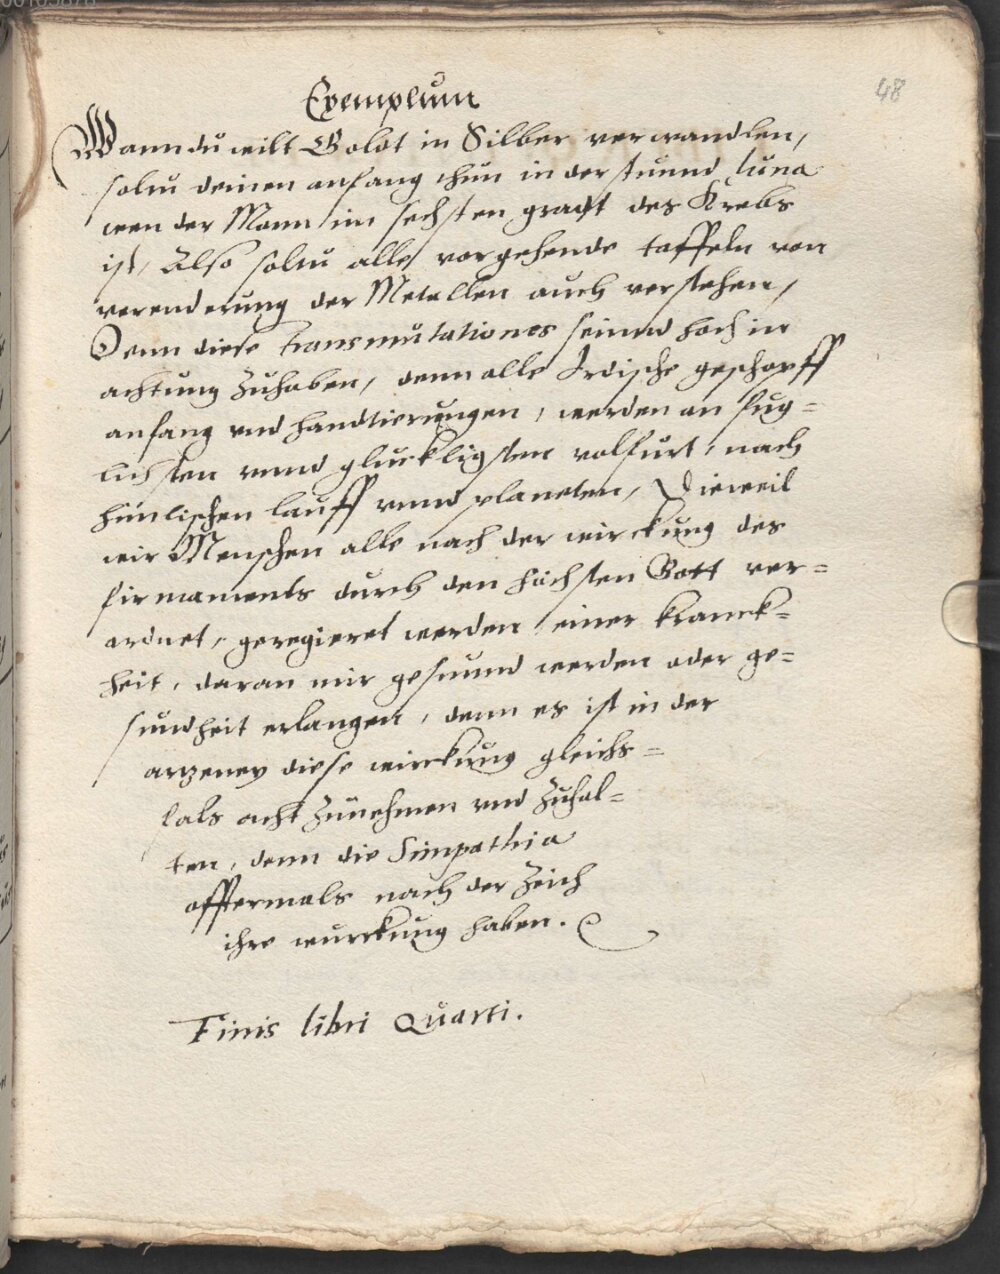 48
Exemplum
Wann du wilt Goldt in Silber verwandlen,
soltu deinen anfang thun in der stunnd luna
wen der Monn im sechsten gradt des Krebs
ist, Also soltu alle vorgehende taffeln von
verenderung der Metallen auch verstehen,
Denn diese transmutationes seinnd hoch in
achtung Zuhaben, denn alle Irdische geschopff
anfang vnd handtierungen, werden am fug=
lichsten vnnd glückligsten volfurt, nach
himlischen lauff vnnd planeten, Dieweil
wir Menschen alle nach der wirckung des
firmaments durch den höchsten Gott ver=
ordnet, geregieret werden einer kranck=
heit, daran mir gesunnd werden oder ge=
sundheit erlangen, denn es ist in der
artzeney diese wirckung gleichs=
fals acht Zunehmen vnd Zuhal=
ten, denn die Simpathia
offtermals nach der Zeich
ihre wurckung haben.
Finis libri Quarti.